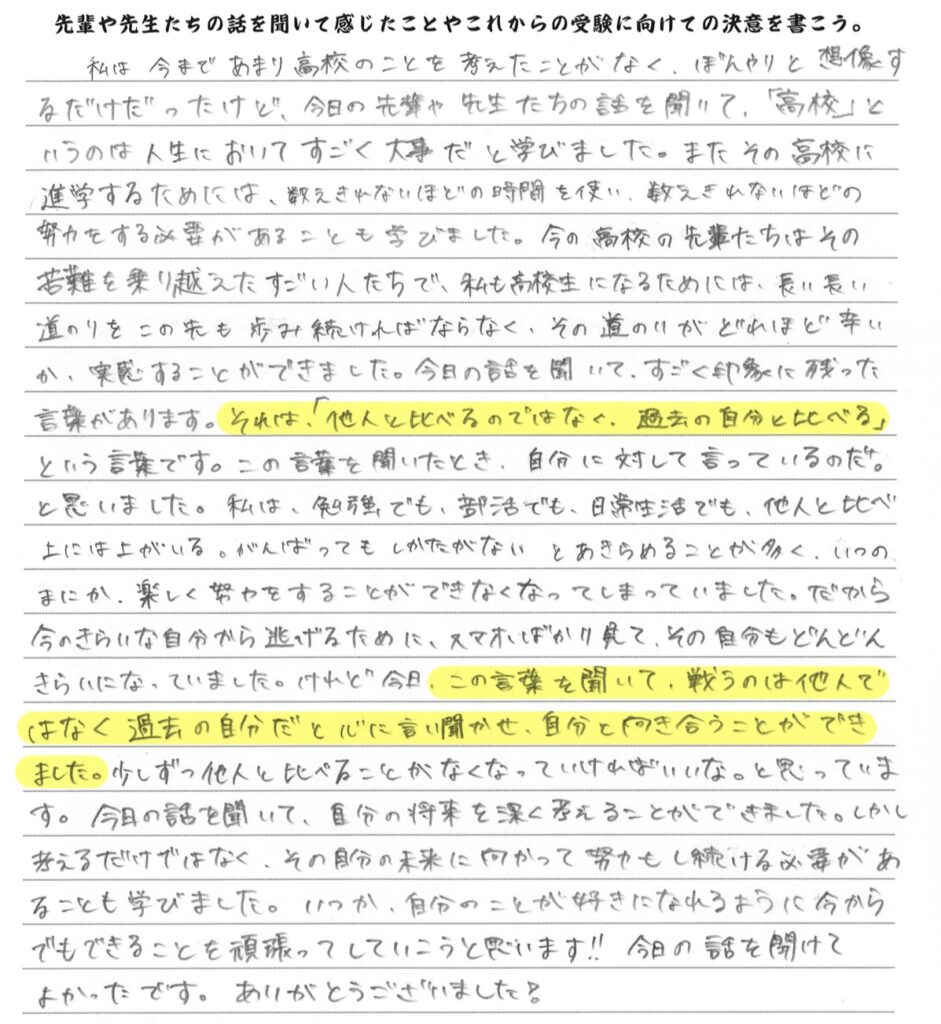 先輩や先生たちの話を聞いて感じたことやこれからの受験に向けての決意を書こう。
私は今まであまり高校のことを考えたことがなく、ぼんやりと想像す
るだけだったけど、今日の先輩や先生たちの話を聞いて、「高校」と
いうのは人生においてすごく大事だと学びました。またその高校に
進学するためには、数えきれないほどの時間を使い、数えきれないほどの
努力をする必要があることも学びました。今の高校の先輩たちはその
苦難を乗り越えたすごい人たちで、私も高校生になるためには、長い長い
道のりをこの先も歩み続ければならなく、その道のりがどれほど辛い
か、実感することができました。今日の話を聞いて、すごく印象に残った
言葉があります。それは、「他人と比べるのではなく、過去の自分と比べる」
という言葉です。この言葉を聞いたとき、自分に対して言っているのだ。
と思いました。私は、勉強でも、部活でも、日常生活でも、他人と比べ
上には上がいる。がんばってもしかたがない とあきらめることが多く、いつの
まにか、楽しく努力をすることができなくなってしまっていました。だから
今のきらいな自分から逃げるために、スマホばかり見て、その自分もどんどん
きらいになっていました。けれど今日、この言葉を聞いて、戦うのは他人で
はなく過去の自分だと心に言い聞かせ、自分と向き合うことができ
ました。少しずつ他人と比べることがなくなっていければいいな。と思っていま
す。今日の話を聞いて、自分の将来を深く考えることができました。しかし
考えるだけではなく、その自分の未来に向かって努力もし続ける必要があ
ることも学びました。いつか、自分のことが好きになれるように今から
でもできることを頑張ってしていこうと思います!! 今日の話を聞けて
よかったです。ありがとうございました!